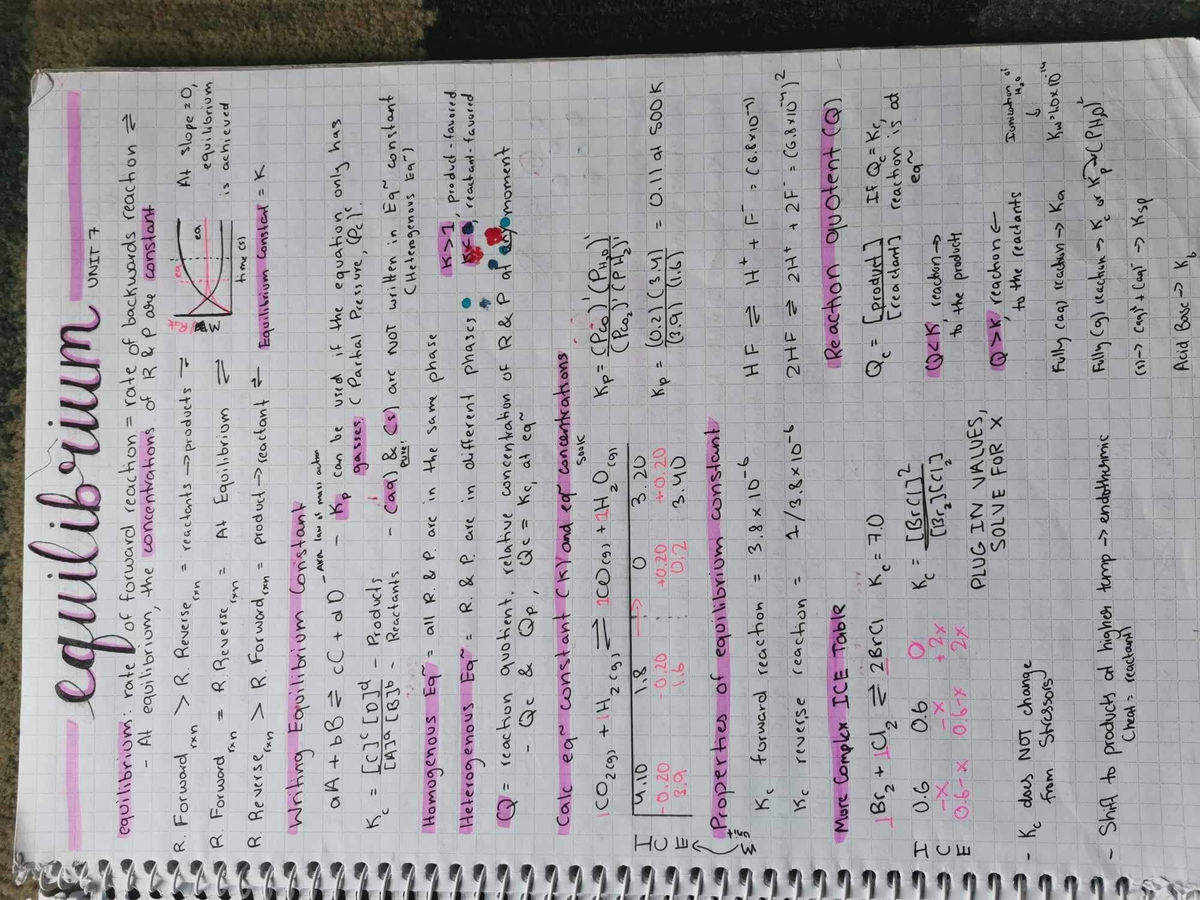 equilibrium
UNIT 7
equilibrium: rate of forward reaction = rate of backwards reaction ⇌
- At equilibrium, the concentrations of R & P are constant
R. Forward rxn > R. Reverse rxn = reactants → products ⇌
R Forward rxn = R Reverse rxn = At Equilibrium ⇌
R Reverse rxn > R. Forward rxn = product → reactant ⇌
eq
eq
M
time (s)
At slope = 0,
equilibrium
is achieved
Equilibrium Constant = K
Writing Equilibrium Constant
aA + bB ⇌ cC + dD
- AKA law of mass action
Kc = [C]^c [D]^d / [A]^a [B]^b
- Products
- Reactants
- Kp can be used if the equation only has
gasses. (Partial Pressure, (Pc)^c
- (aq) & (s) are NOT written in Eq~ constant
pure!
(Heterogenous Eq~)
Homogenous Eq~ = all R. & P. are in the same phase
Heterogenous Eq~ = R. & P. are in different phases
K>1, product-favored
reactant-favored
Q = reaction quotient, relative concentration of R & P at any moment
- Qc & Qp, Qc = Kc, at eq~
Calc eq~ constant (K) and eq~ concentrations
1CO2(g) + 1H2(g) ⇌ 1CO(g) + 1H2O(g)
500K
I 4.10 1.8 → 0 3.20
C -0.20 -0.20 +0.20 +0.20
E 3.9 1.6 0.2 3.40
Kp = (PCO)^1 (PH2O)^1 / (PCO2)^1 (PH2)^1
Kp = (0.2)(3.4) / (3.9)(1.6) = 0.11 at 500K
Properties of equilibrium constant
Kc forward reaction = 3.8 x 10^-6
Kc reverse reaction = 1/3.8 x 10^-6
HF ⇌ H+ + F- = (6.8x10^-4)
2HF ⇌ 2H+ + 2F- = (6.8x10^-4)^2
More Complex ICE Table
1Br2 + 1Cl2 ⇌ 2BrCl Kc = 7.0
I 0.6 0.6 0
C -x -x +2x
E 0.6-x 0.6-x 2x
Kc = [BrCl]^2 / [Br2][Cl2]
PLUG IN VALUES,
SOLVE FOR X
Reaction Quotent (Q)
Qc = [product] / [reactant]
If Qc = Kc,
reaction is at
eq~
Q<K, reaction →
to the products
Q>K, reaction ←
to the reactants
- Kc does NOT change
from Stressors
- Shift to products at higher temp → endothermic
(heat = reactant)
Fully (aq) reaction → Ka
Kw = 1.0x10^-14
Fully (g) reaction → Kc or Kp → (PH2)^2
(s) → (aq)+ (aq)- → Ksp
Acid Base → Kb